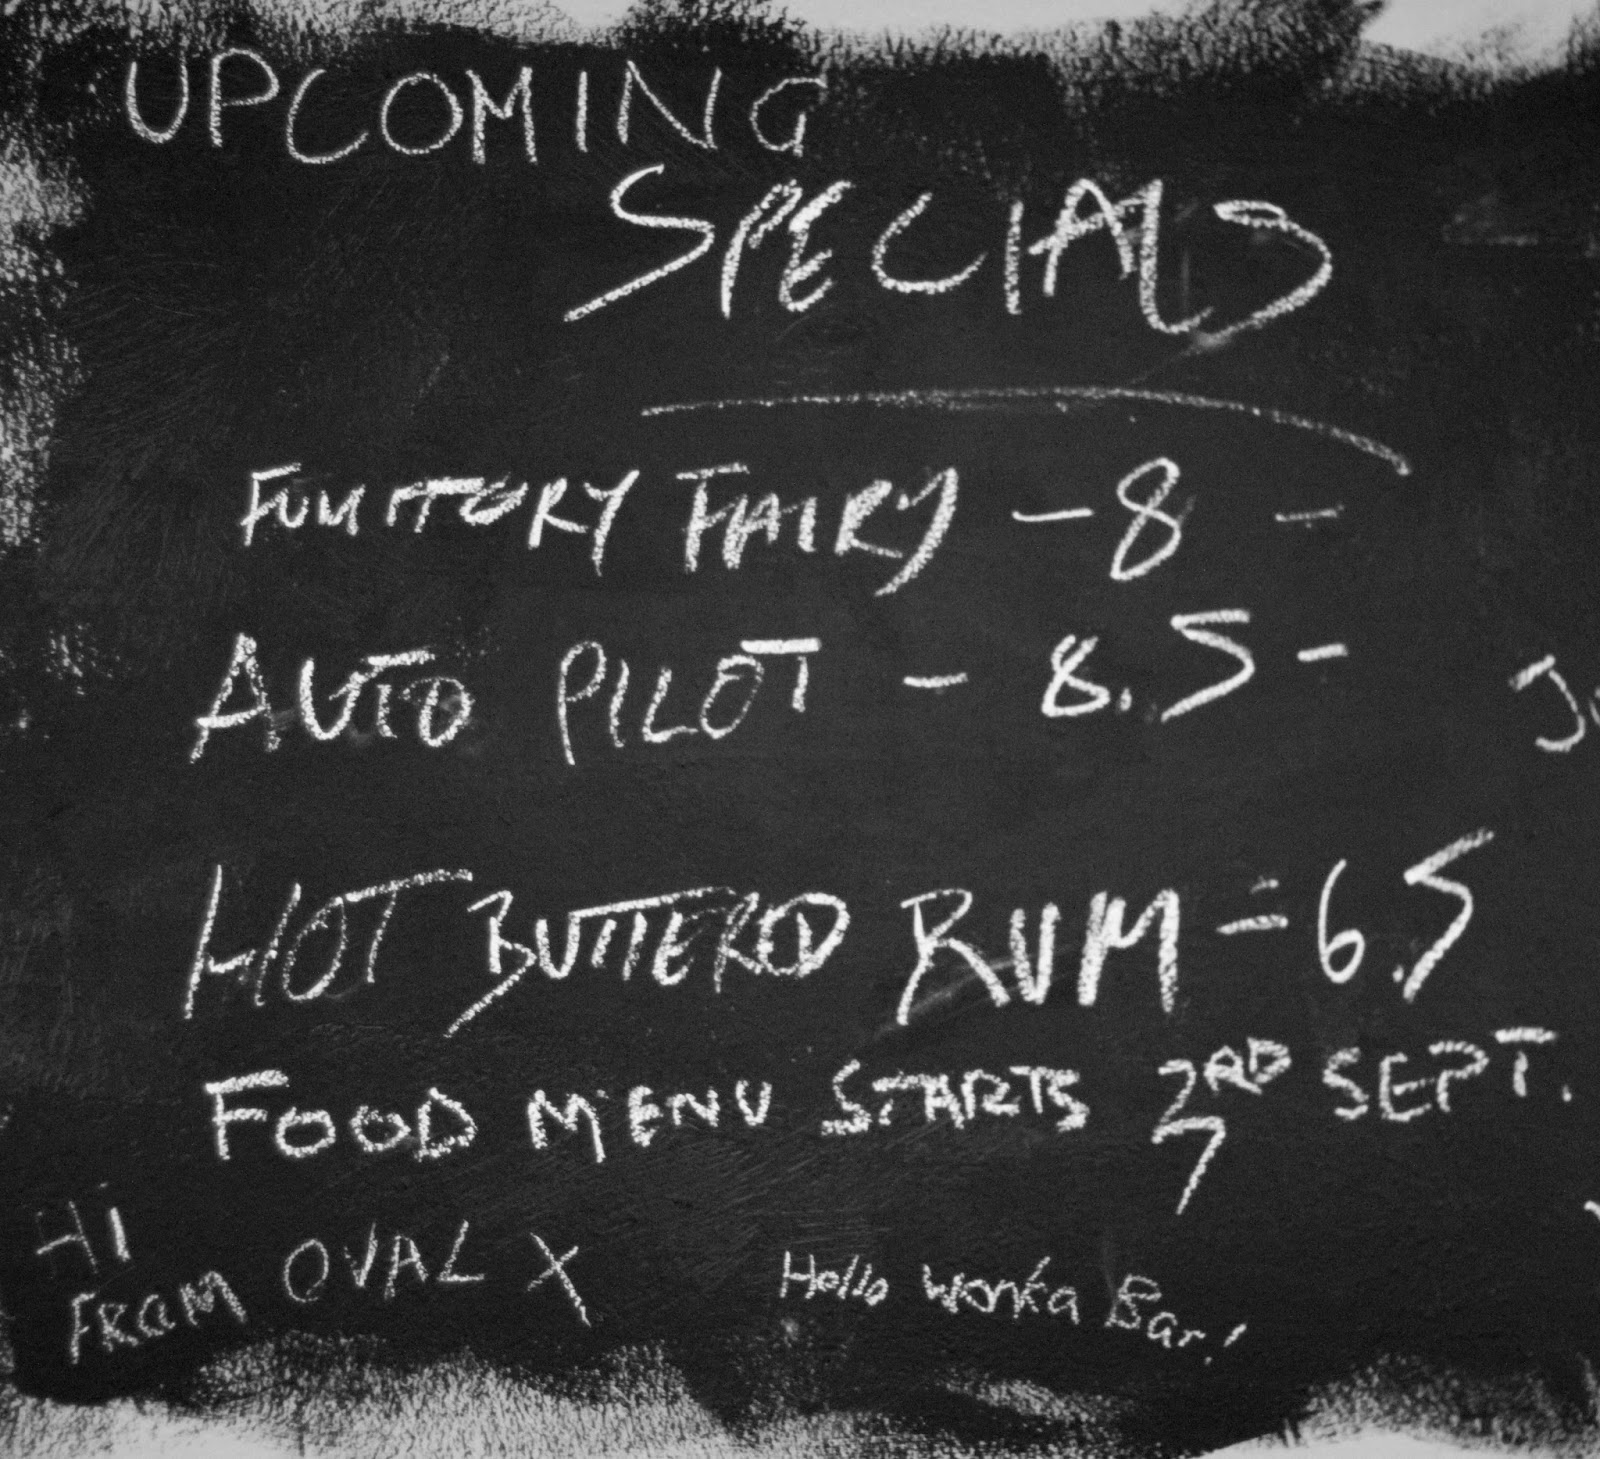 UPCOMING
SPECIALS
FUMITORY FAIRY - 8 -
AUTO PILOT - 8.5 -
HOT BUTTERED RUM = 6.5
FOOD MENU STARTS 2RD SEPT.
HI
FROM OVAL X
Hello Wonka Bar!